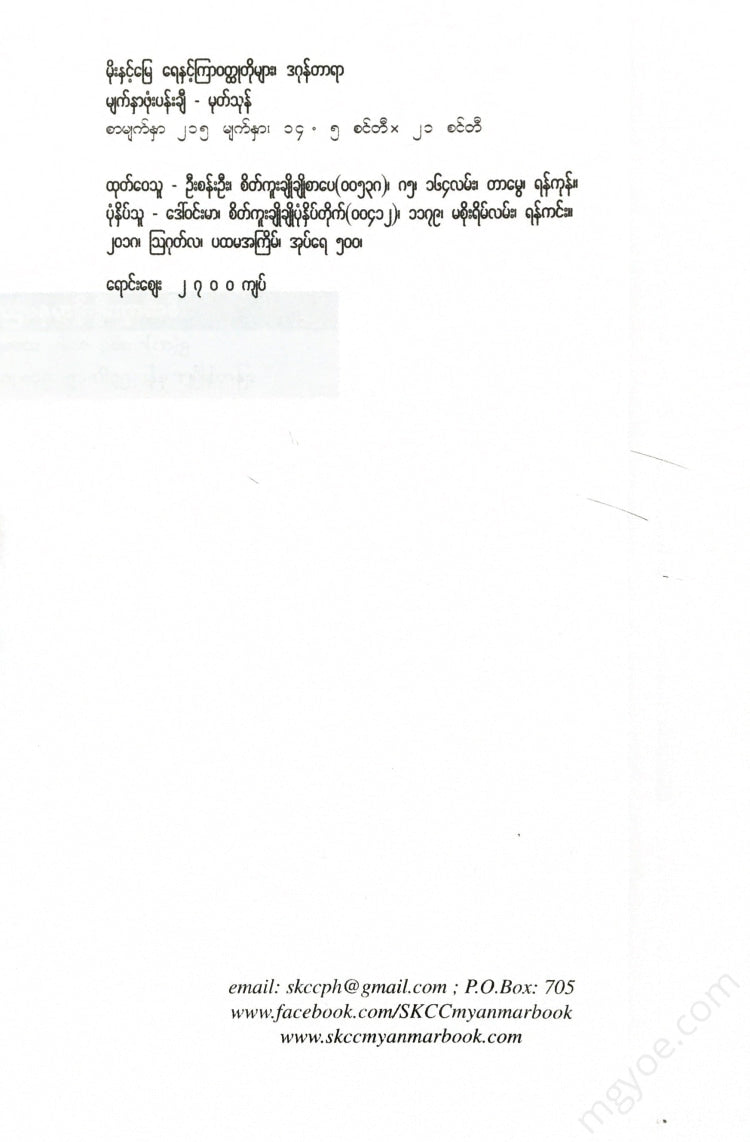 မိုးနှင့်မြေ ရေနှင့်ကြာဝတ္ထုတိုများ၊ ဒဂုန်တာရာ
မျက်နှာဖုံးပန်းချီ - မုတ်သုန်
စာမျက်နှာ ၂၁၅ မျက်နှာ၊ ၁၄.၅ စင်တီ× ၂၁ စင်တီ
ထုတ်ဝေသူ - ဦးစန်းဦး၊ စိတ်ကူးချိုချိုစာပေ(၀၀၅၃၈)၊ ၈၅၊ ၁၆၄လမ်း၊ တာမွေ၊ ရန်ကုန်။
ပုံနှိပ်သူ - ဒေါ်ဝင်းမာ၊ စိတ်ကူးချိုချိုပုံနှိပ်တိုက်(၀၀၄၁၂)၊ ၁၁၇၉၊ မစိုးရိမ်လမ်း၊ ရန်ကင်း။
၂၀၁၈၊ ဩဂုတ်လ၊ ပထမအကြိမ်၊ အုပ်ရေ ၅၀၀၊
ရောင်းဈေး ၂ ၇ ၀ ၀ ကျပ်
email: skccph@gmail.com ; P.O.Box: 705
www.facebook.com/SKCCmyanmarbook
www.skccmyanmarbook.com
mgyoe.com